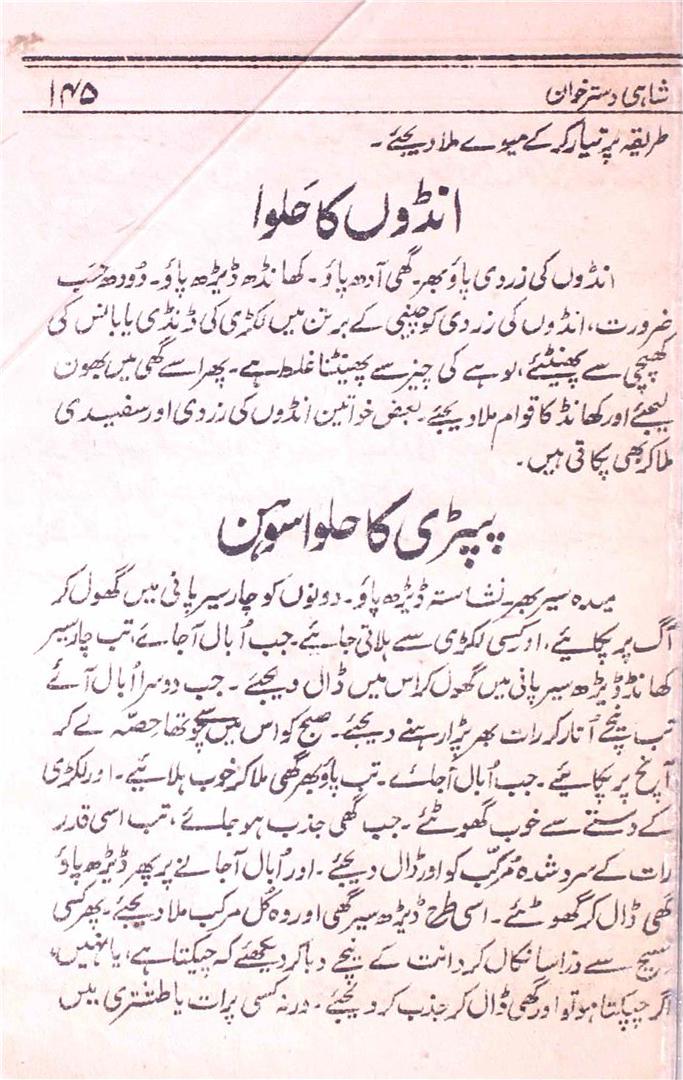 شاہی دسترخوان ۱۴۵
طریقہ پر تیار کر کے میوے ملا دیجئے۔
انڈوں کا حَلوا
انڈوں کی زردی پاؤ بھر۔ گھی آدھ پاؤ۔ کھانڈھ ڈیڑھ پاؤ۔ دُودھ حَسَب
ضرورت، انڈوں کی زردی کو چینی کے برتن میں لکڑی کی ڈنڈی یا بانس کی
کھپچی سے پھینٹئے، لوہے کی چیز سے پھینٹنا غلط ہے۔ پھر اسے گھی میں بھون
لیجئے اور کھانڈ کا قوام ملا دیجئے۔ بعض خواتین انڈوں کی زردی اور سفیدی
ملا کر بھی پکاتی ہیں۔
پپڑی کا حلوا سوہن
میدہ سیر بھر۔ نشاستہ ڈیڑھ پاؤ۔ دونوں کو چار سیر پانی میں گھول کر
آگ پر پکائیے، اور کسی لکڑی سے ہلاتی جائیے۔ جب اُبال آجائے، تب چار سیر
کھانڈ ڈیڑھ سیر پانی میں گھول کر اس میں ڈال دیجئے۔ جب دوسرا اُبال آئے
تب نیچے اُتار کر رات بھر پڑا رہنے دیجئے۔ صبح کو اس میں سے چوتھا حصّہ لے کر
آنچ پر پکائیے۔ جب اُبال آجائے۔ تب پاؤ بھر گھی ملا کر خوب ہلائیے۔ اور لکڑی
کے دستے سے خوب گھوٹئے۔ جب گھی جذب ہو جائے، تب اسی قدر
رات کے سرد شدہ مُرکّب کو اور ڈال دیجئے۔ اور اُبال آجانے پر پھر ڈیڑھ پاؤ
گھی ڈال کر گھوٹئے۔ اسی طرح ڈیڑھ سیر گھی اور وہ کُل مرکب ملا دیجئے۔ پھر کسی
سیخ سے ذرا سا نکال کر دانت کے نیچے دبا کر دیکھئے کہ چپکتا ہے، یا نہیں،
اگر چپکتا ہو تو اور گھی ڈال کر جذب کر دیجئے۔ ورنہ کسی پرات یا طشتری میں